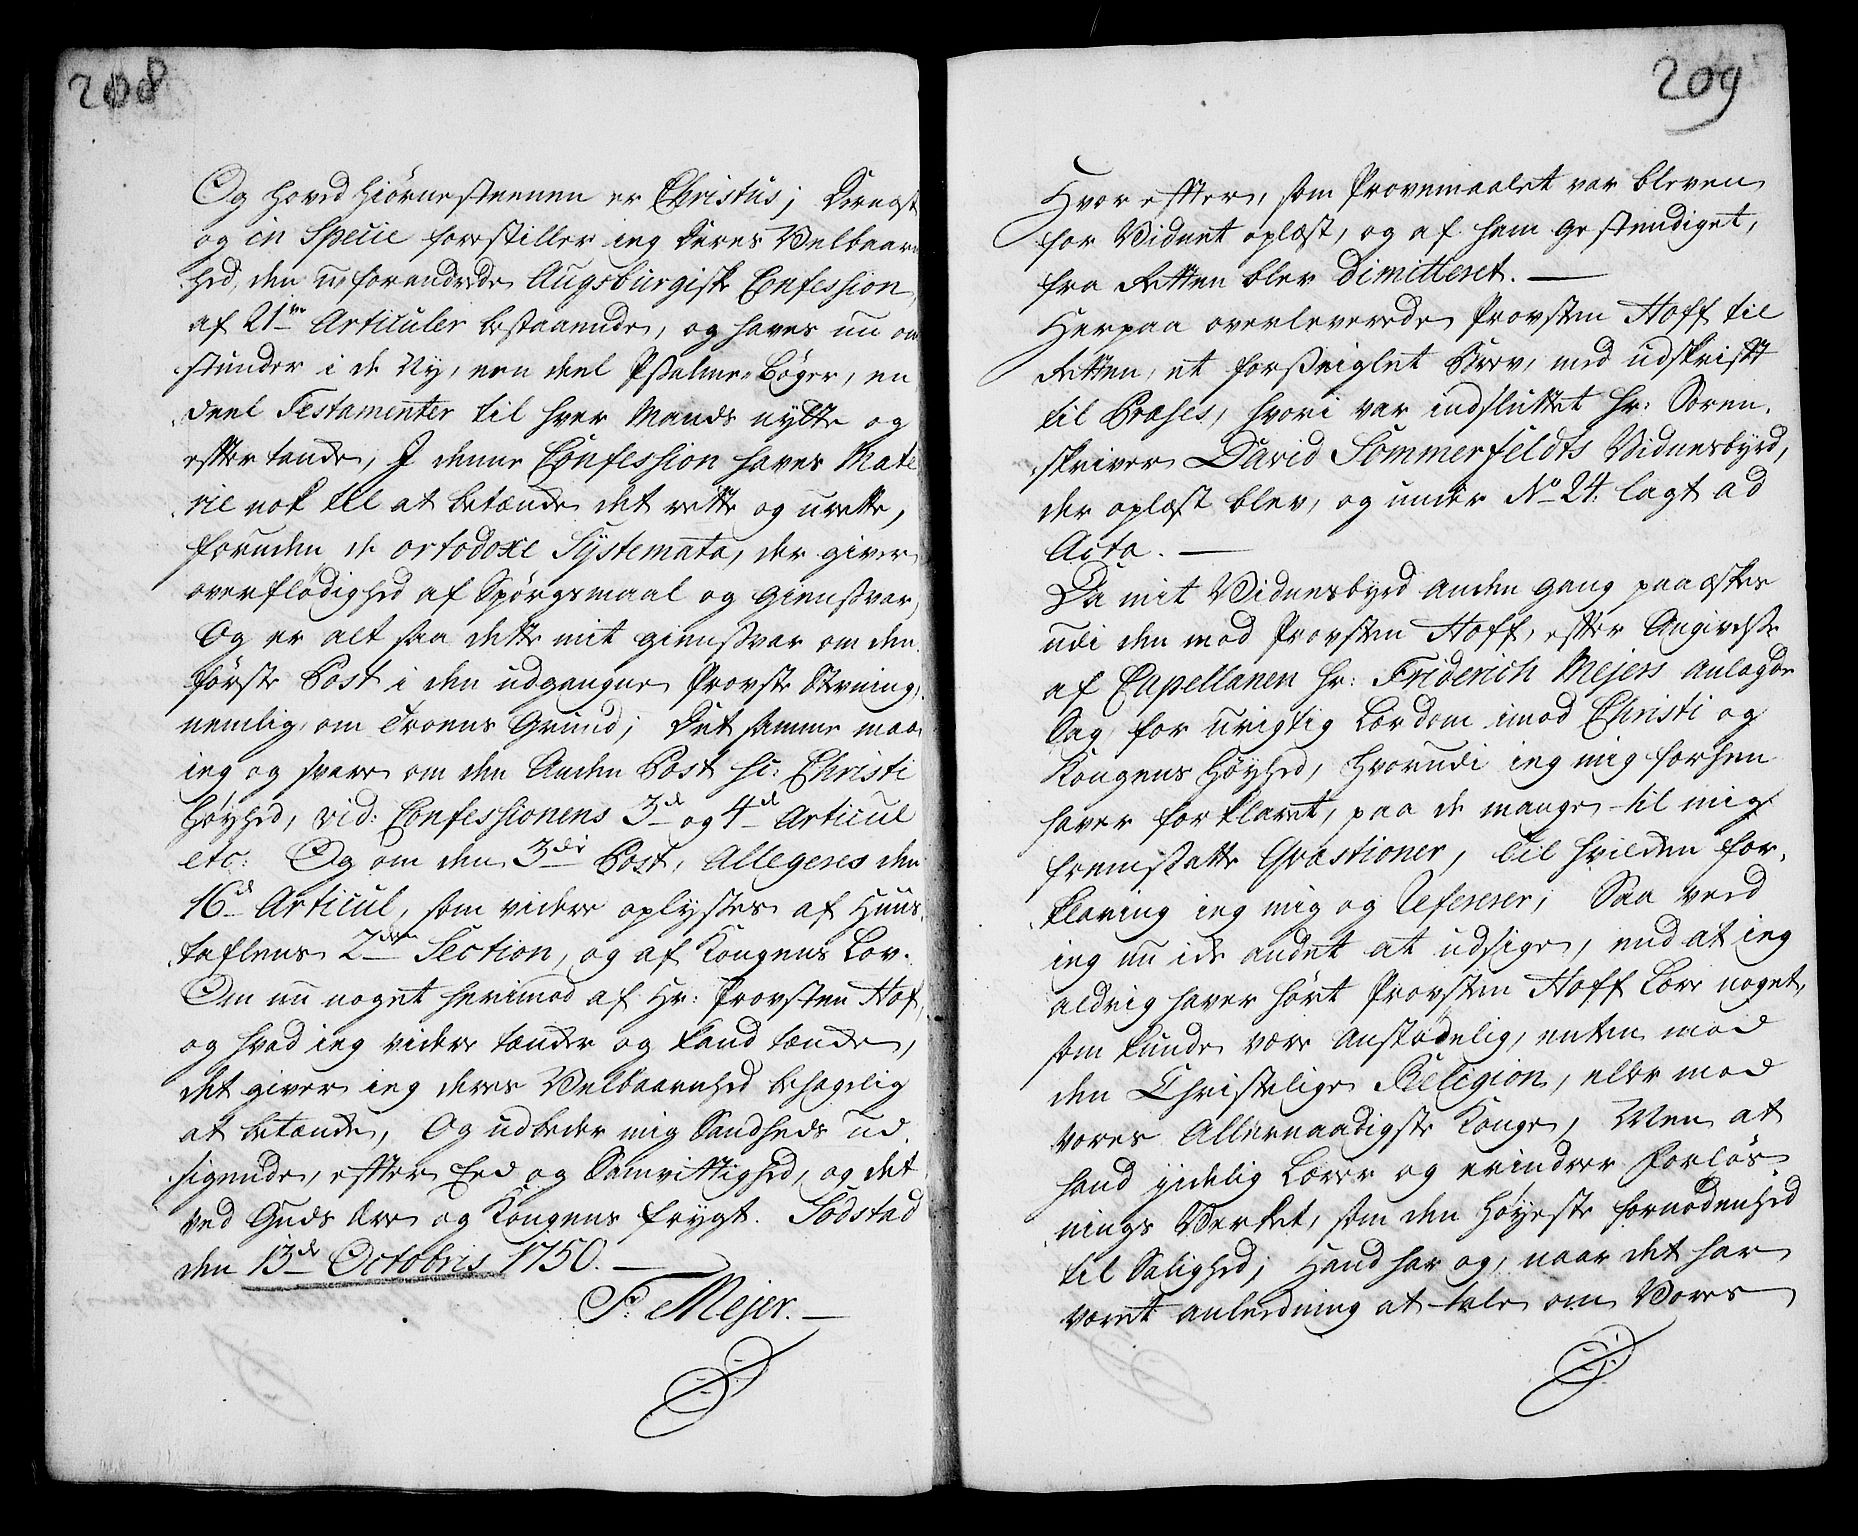 208
Og hoved Hiörnesteenen er Christus; Dernæst
og in Specie forestiller ieg Deres Velbaaren
hed, den uforandrede Augsburgiske Confession,
af 21de Articuler bestaaende, og haves nu om
stunder i de Ny, een deel Psalme-Bøger, en
deel Testamenter til hver Mands nytte og
eftertancke, I denne Confession haves Mate
rie nok til at betæncke det rette og urette,
foruden de ortodoxe Systemata, der giver
overflödighed af Spörgsmaal og Giensvar,
Og er alt saa dette mit giensvar om den
første Post i den udgangne Provste Stevning,
nemlig om Troens Grund; Det samme maa
ieg og svare om den Anden Post sc: Christi
Høyhed, vid: Confessionens 3de og 4de Articul
etc: Og om den 3die Post, Allegeres den
16de Articul, som videre oplyses af Huus-
taflens 2den Section, og af Kongens Lov.
Om nu noget herimod af Hr: Provsten Hof,
og hvad ieg videre tæncker og kand tæncke,
det giver ieg deres Velbaarenhed behagelig
at betæncke, Og udbeder mig Sandheds ud-
sigende, efter Eed og Samvittighed, og det
ved Guds Ære og Kongens Frygt. Södstad
den 13de Octobris 1750.
F. Mejer.
209
Hvor efter, som Provemaalet var bleven
for Vidnet oplæst, og af ham gestendiget,
fra Retten blev Dimitteret.
Herpaa overleverede Provsten Hoff til
Retten, et forseiglet Brev, med udskrift
til Præses, hvori var indsluttet Hr: Soren-
skriver David Sommerfeldts Vidnesbyrd,
der oplæst blev, og under No 24. lagt ad
Acta.
Da mit Vidnesbyrd anden gang paaæskes
udi den mod Provsten Hoff, efter Angivelse
af Capellanen Hr: Friderich Mejers anlagde
Sag, for urigtig Lærdom imod Christi og
Kongens Høyhed, Hvorudi ieg mig forhen
haver forklaret, paa de mange til mig
fremsatte Qvæstioner, til hvilcken for-
klaring ieg mig og Refererer; Saa veed
ieg nu icke andet at udsige, end at ieg
aldrig haver hørt Provsten Hoff Lære noget,
som kunde være Anstødelig, enten mod
den Christelige Religion, eller mod
vores Allernaadigste Konge, Men at
hand jidelig Lærer og erindrer Forløs-
nings Verket, som den Høyeste fornødenhed
til Salighed; Hand har og, naar det har
været anledning at tale om Vores